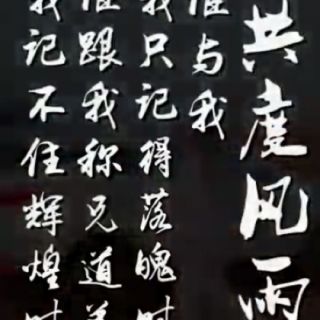 我记不住辉煌时
谁跟我称兄道弟
我只记得落魄时
谁与我
共度风雨